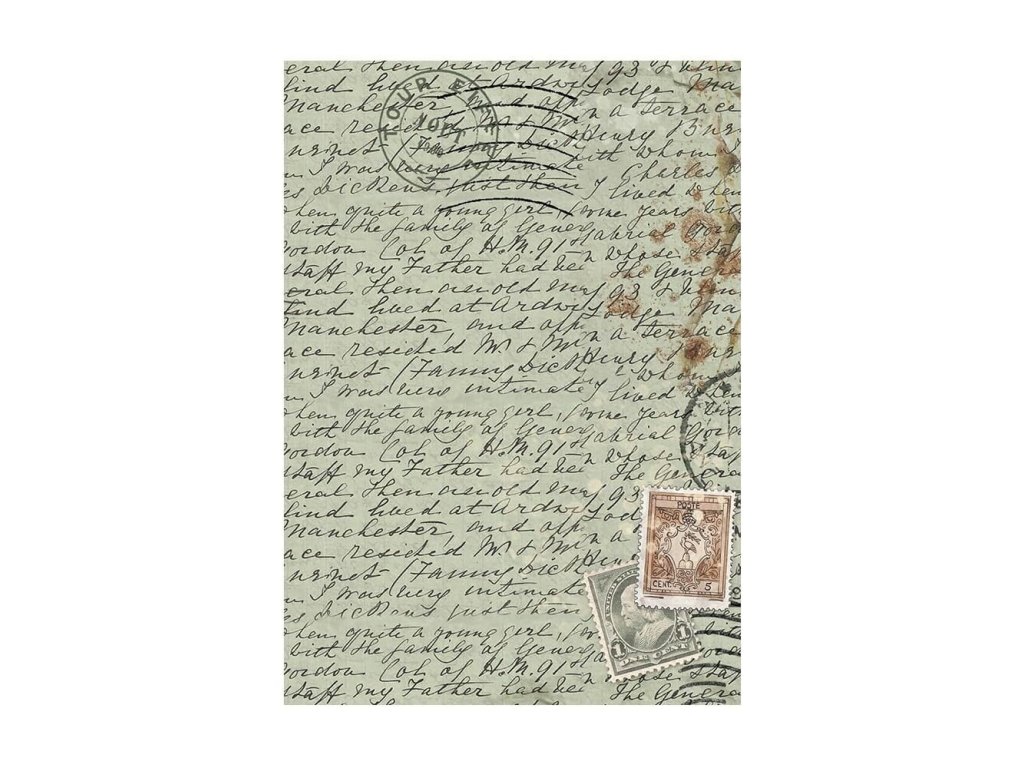 eral then an old man 93 & living
TOUR EIFFEL
AOUT
kind lived at Ardwi Lodge Ma
Manchester, and opp in a Terrace
ace resided Mr & Mr Henry Burn
urnet (Fanny Dick with whom
I was very intimate Charles
es Dickens. just then I lived when
when quite a young girl, some years
with the family of Gener Gabrial Gor
Gordon Col of H.M. 91 in whose
staff my Father had bee The General
eral then an old man 93 & livin
kind lived at Ardwi Lodge Ma
Manchester, and opp in a Terrace
ace resided Mr & Mr Henry Burn
urnet (Fanny Dick whom
I was very intimate I lived when
when quite a young girl, some years with
with the family of Gener Gabrial Gor
Gordon Col of H.M. 91 in whose Staf
staff my Father had bee The General
eral then an old man 93
kind lived at Ardwi Lodge
POSTE
Manchester, and opp in a
ace resided Mr & Mr Henry
urnet (Fanny Dick
CENT. 5
I was very intimate
es Dickens just then
when quite a young girl,
1 ONE CENT 1
with the family of Gener
Gordon Col of H.M. 91
staff my Father had bee The General